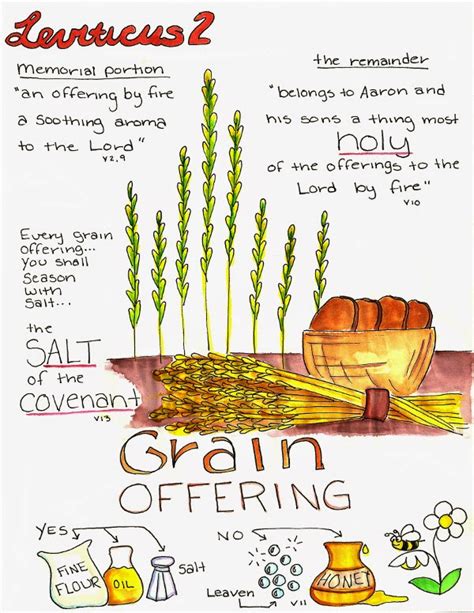 Leviticus 2
Memorial portion
"an offering by fire
a soothing aroma
to the Lord"
v2,9
the remainder
"belongs to Aaron and
his sons a thing most
holy
of the offerings to the
Lord by fire"
v10
Every grain
offering...
you shall
season
with
salt...
the
SALT
of the
COVENANT
v13
Grain
OFFERING
YES
FINE
FLOUR
OIL
Salt
NO
Leaven
v11
HONEY